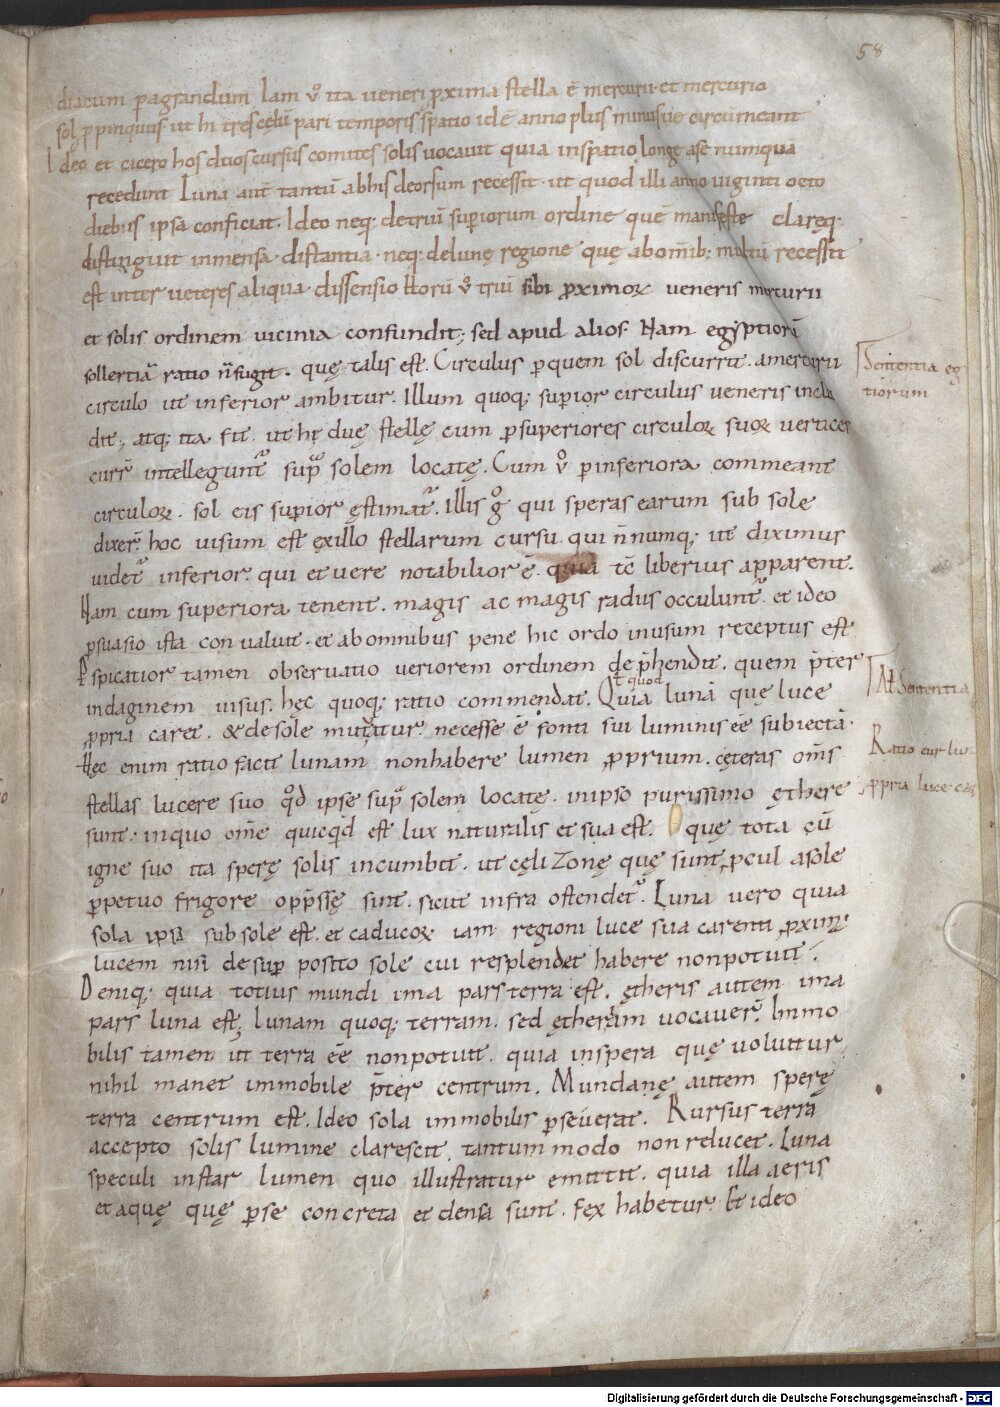 58
diacum ꝑagrandum Iam v̊ ita veneri ꝓxima stella ē mercurii et mercurio
sol ꝓpinquus ut hi tres celū pari temporis spatio idē anno plus minusve circūmeant
Ideo et cicero hos duos cursus comites solis vocavit quia inspatio longe ase numqua
recedunt Luna aut̄ tantū abhis deorsum recessit · ut quod illi anno viginti octo
diebus ipsa conficiat · Ideo neq; detriū suꝑiorum ordine quē manifeste clareq;
distinguit inmensa distantia · neq; delunę regione quę abom̄ib; multū recessit
est inter veteres aliqua dissensio Horū v̊ triū sibi ꝓximoꝝ veneris mercurii
et solis ordinem vicinia confundit; sed apud alios. Nam egyptiorū
sollertiā ratio n̄ fugit · quę talis est. Circulus ꝑquem sol discurrit · amercurii
circulo ut inferior ambitur. Illum quoq; suꝑior circulus veneris inclu
dit; atq; ita fit · ut hę duę stellę cum ꝑsuperiores circuloꝝ suoꝝ vertices
curr̄ intelleguntᷣ supᵃ solem locatę. Cum v̊ ꝑinferiora commeant
circuloꝝ · sol eis suꝑior ęstimatᷣ. Illis g̊ qui speras earum sub sole
dixer̄ hoc visum est exillo stellarum cursu · qui n̄numq; ut diximus
videtᷣ inferior · qui et vere notabilior ē · quia tc̄ liberius apparent.
Nam cum superiora tenent · magis ac magis radiis occuluntᷣ et ideo
ꝑsuasio ista convaluit · et abomnibus pene hic ordo inusum receptus est
Pspicatior tamen observatio veriorem ordinem dep̄hendit · quem p̄ter
ł quod
indaginem visus · hęc quoq; ratio commendat. Quia lunā quę luce
ꝓpria caret · & desole mutuatur · necesse ē fonti sui luminis eē subiectā ·
Hęc enim ratio facit lunam nonhabere lumen ꝓprium · cęteras om̄s
stellas lucere suo qd̊ ipse supᵃ solem locatę · inipso purissimo ęthere
sunt · inquo om̄e quicqd̄ est lux naturalis et sua est. quę tota cū
igne suo ita sperę solis incumbit · ut cęli zonę quę sunt ꝓcul asole
ꝑpetuo frigore opp̄ssę sint · sicut infra ostendetᷣ. Luna vero quia
sola ipsa subsole est · et caducoꝝ iam regioni luce sua carenti ꝓximᷓ
lucem nisi desuꝑ posito sole cui resplendet habere nonpotuit.
Deniq; quia totius mundi ima pars terra est · ętheris autem ima
pars luna est; lunam quoq; terram · sed ętheream vocaver̄. Immo
bilis tamen ut terra eē nonpotuit · quia inspera quę volvitur
nihil manet immobile p̄ter centrum. Mundanę autem sperę
terra centrum est. Ideo sola immobilis ꝑseverat. Rursus terra
accepto solis lumine clarescit · tantummodo non relucet. Luna
speculi instar lumen quo illustratur emittit · quia illa aeris
et aquę quę ꝑse concreta et densa sunt · fex habetur · Et ideo
Sententia eg
tiorum
Alt̄ Sententia
Ratio cur lu
ꝓpria luce
Digitalisierung gefördert durch die Deutsche Forschungsgemeinschaft - DFG